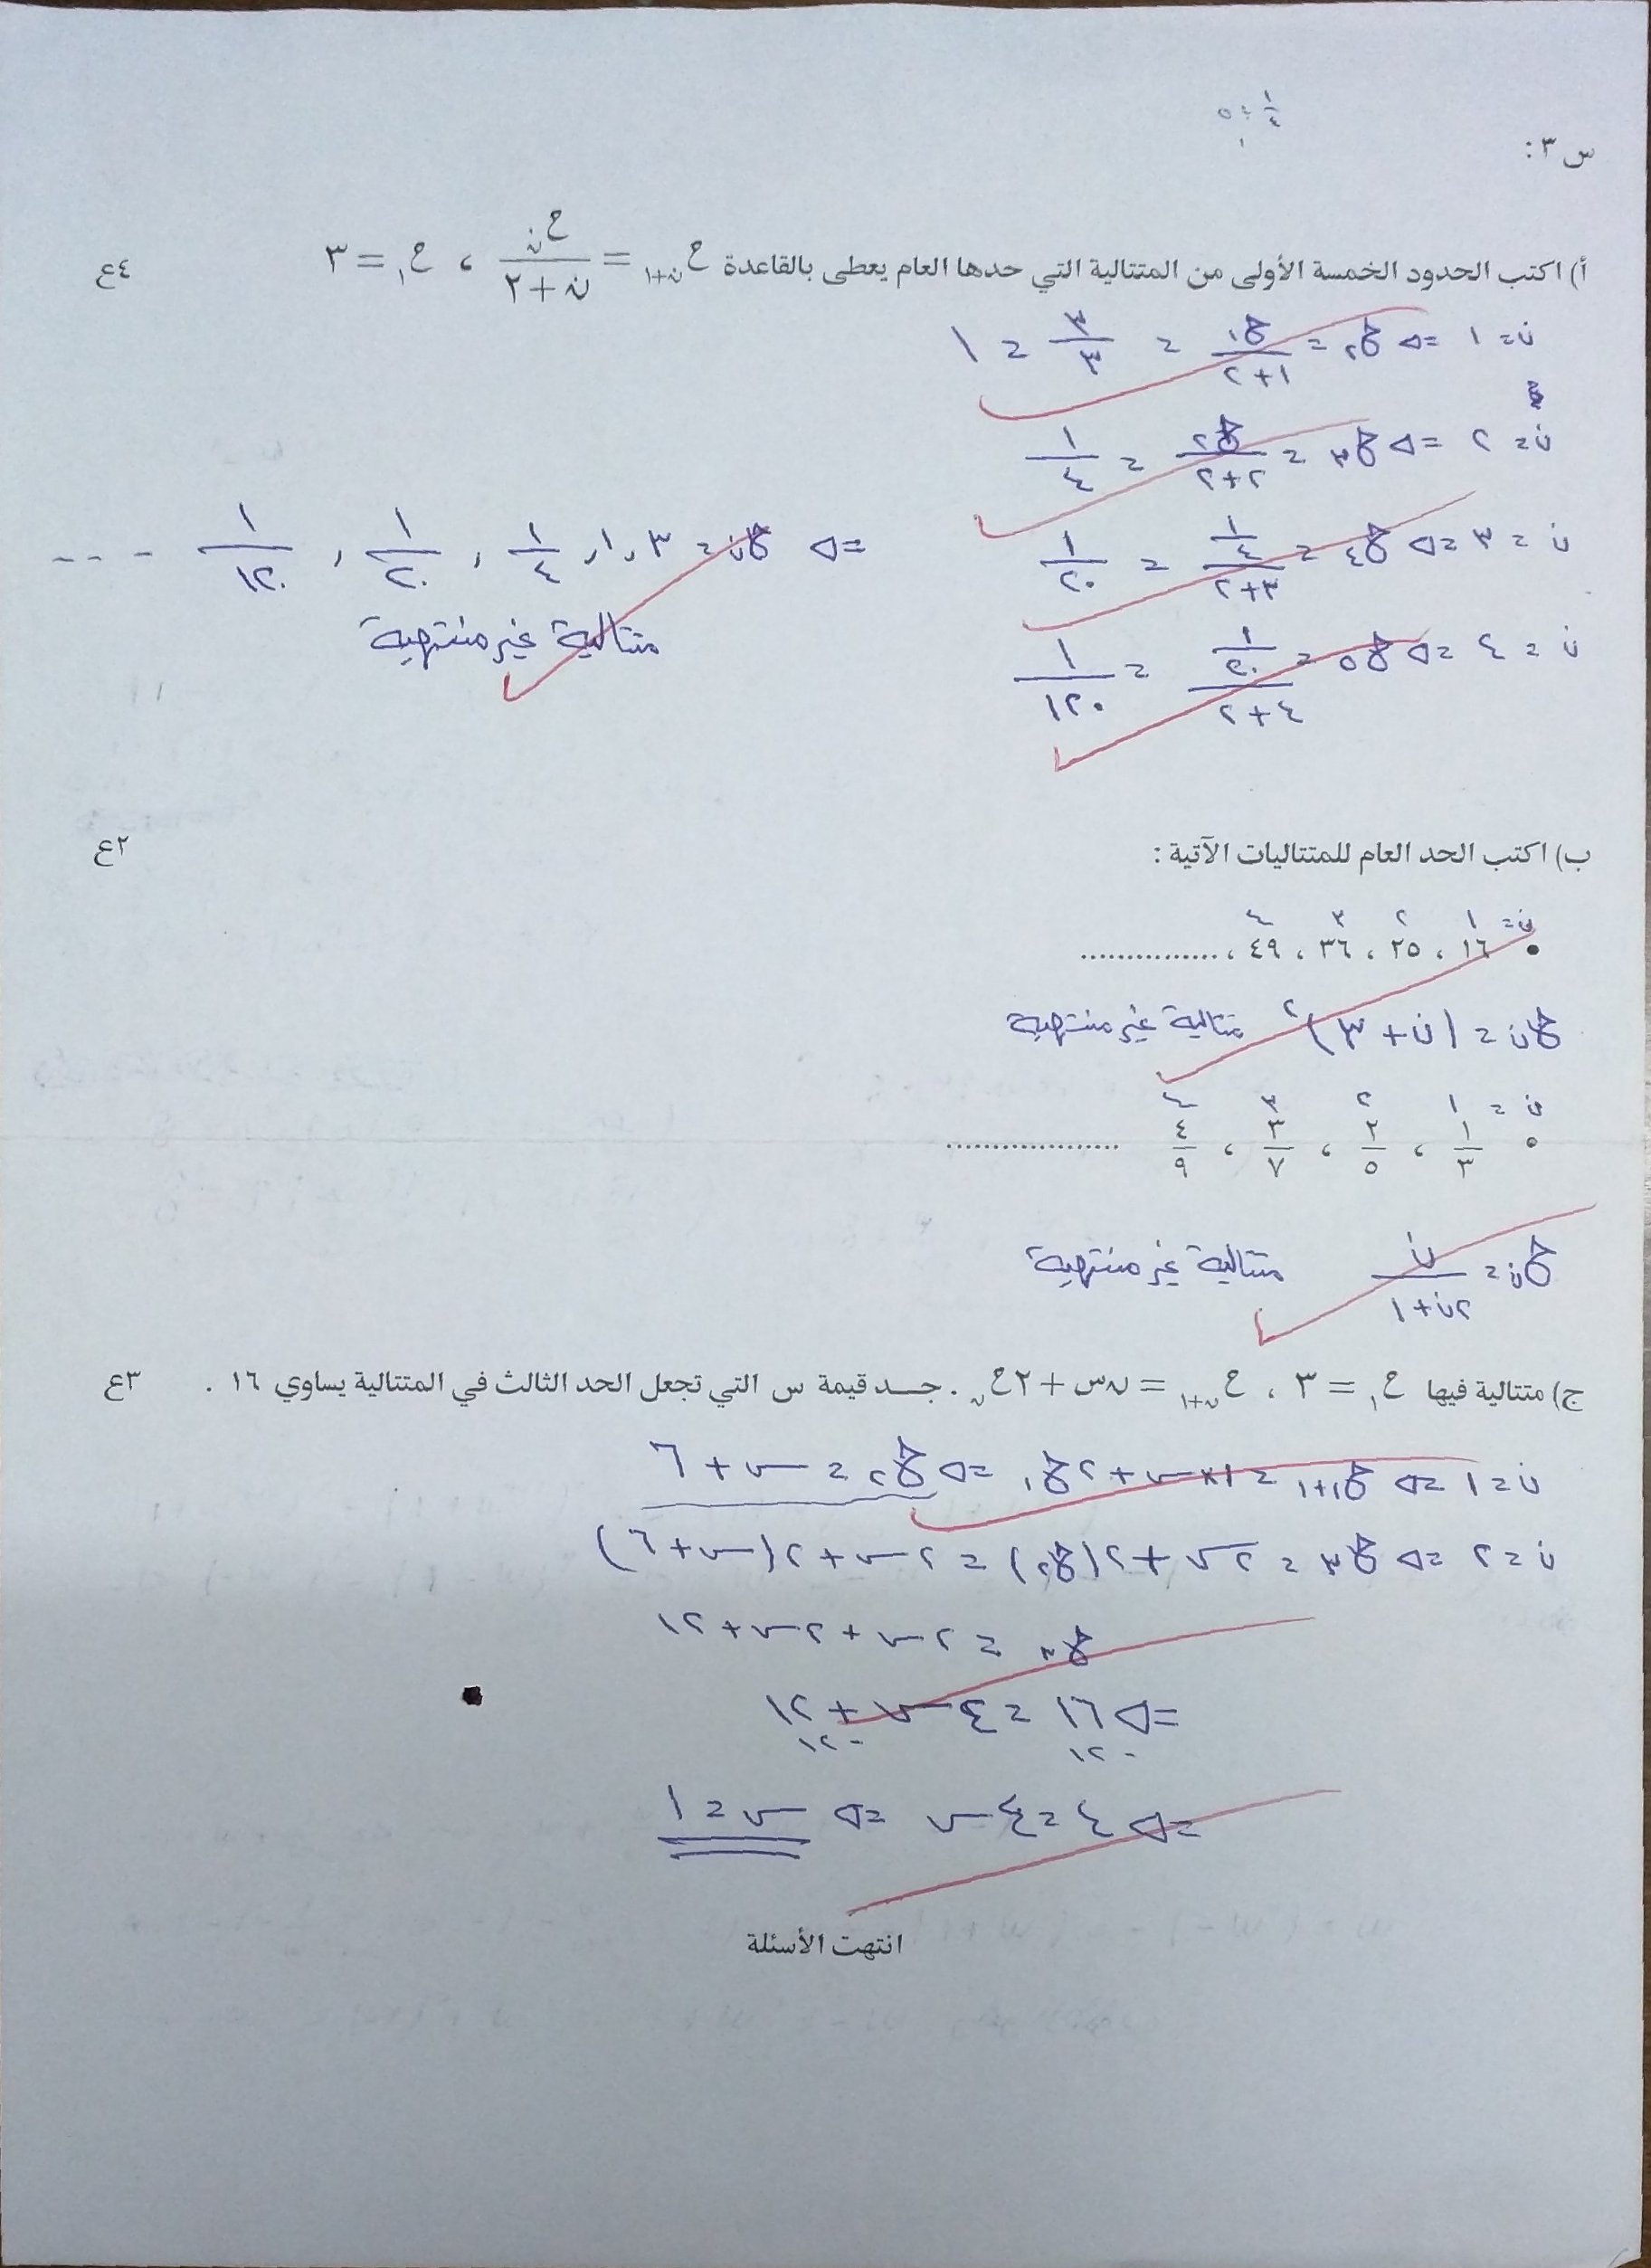 ١/٤ ÷ ٥/١
س ٣ :
أ) اكتب الحدود الخمسة الأولى من المتتالية التي حدها العام يعطى بالقاعدة ح ن+١ = ح ن / (ن + ٢) ، ح ١ = ٣ ٤ع
ن = ١ => ح٢ = ح١ / (١+٢) = ٣/٣ = ١
ن = ٢ => ح٣ = ح٢ / (٢+٢) = ١/٤
ن = ٣ => ح٤ = (١/٤) / (٣+٢) = ١/٢٠
ن = ٤ => ح٥ = (١/٢٠) / (٤+٢) = ١/١٢٠
=> ح ن = ٣ ، ١ ، ١/٤ ، ١/٢٠ ، ١/١٢٠ - - - -
متتالية غير منتهية
ب) اكتب الحد العام للمتتاليات الآتية : ٢ع
ن = ١ ٢ ٣ ٤
• ١٦ ، ٢٥ ، ٣٦ ، ٤٩ ، ................
ح ن = (ن + ٣)٢ متتالية غير منتهية
ن = ١ ٢ ٣ ٤
• ١/٣ ، ٢/٥ ، ٣/٧ ، ٤/٩ ..................
ح ن = ن / (٢ن + ١) متتالية غير منتهية
ج) متتالية فيها ح ١ = ٣ ، ح ن+١ = ن س + ٢ح ن . جـــد قيمة س التي تجعل الحد الثالث في المتتالية يساوي ١٦ . ٣ع
ن = ١ => ح١+١ = ١×س + ٢ح١ => ح٢ = س + ٦
ن = ٢ => ح٣ = ٢س + ٢(ح٢) = ٢س + ٢(س + ٦)
ح٣ = ٢س + ٢س + ١٢
=> ١٦ = ٤س + ١٢
-١٢ -١٢
=> ٤ = ٤س => س = ١
انتهت الأسئلة